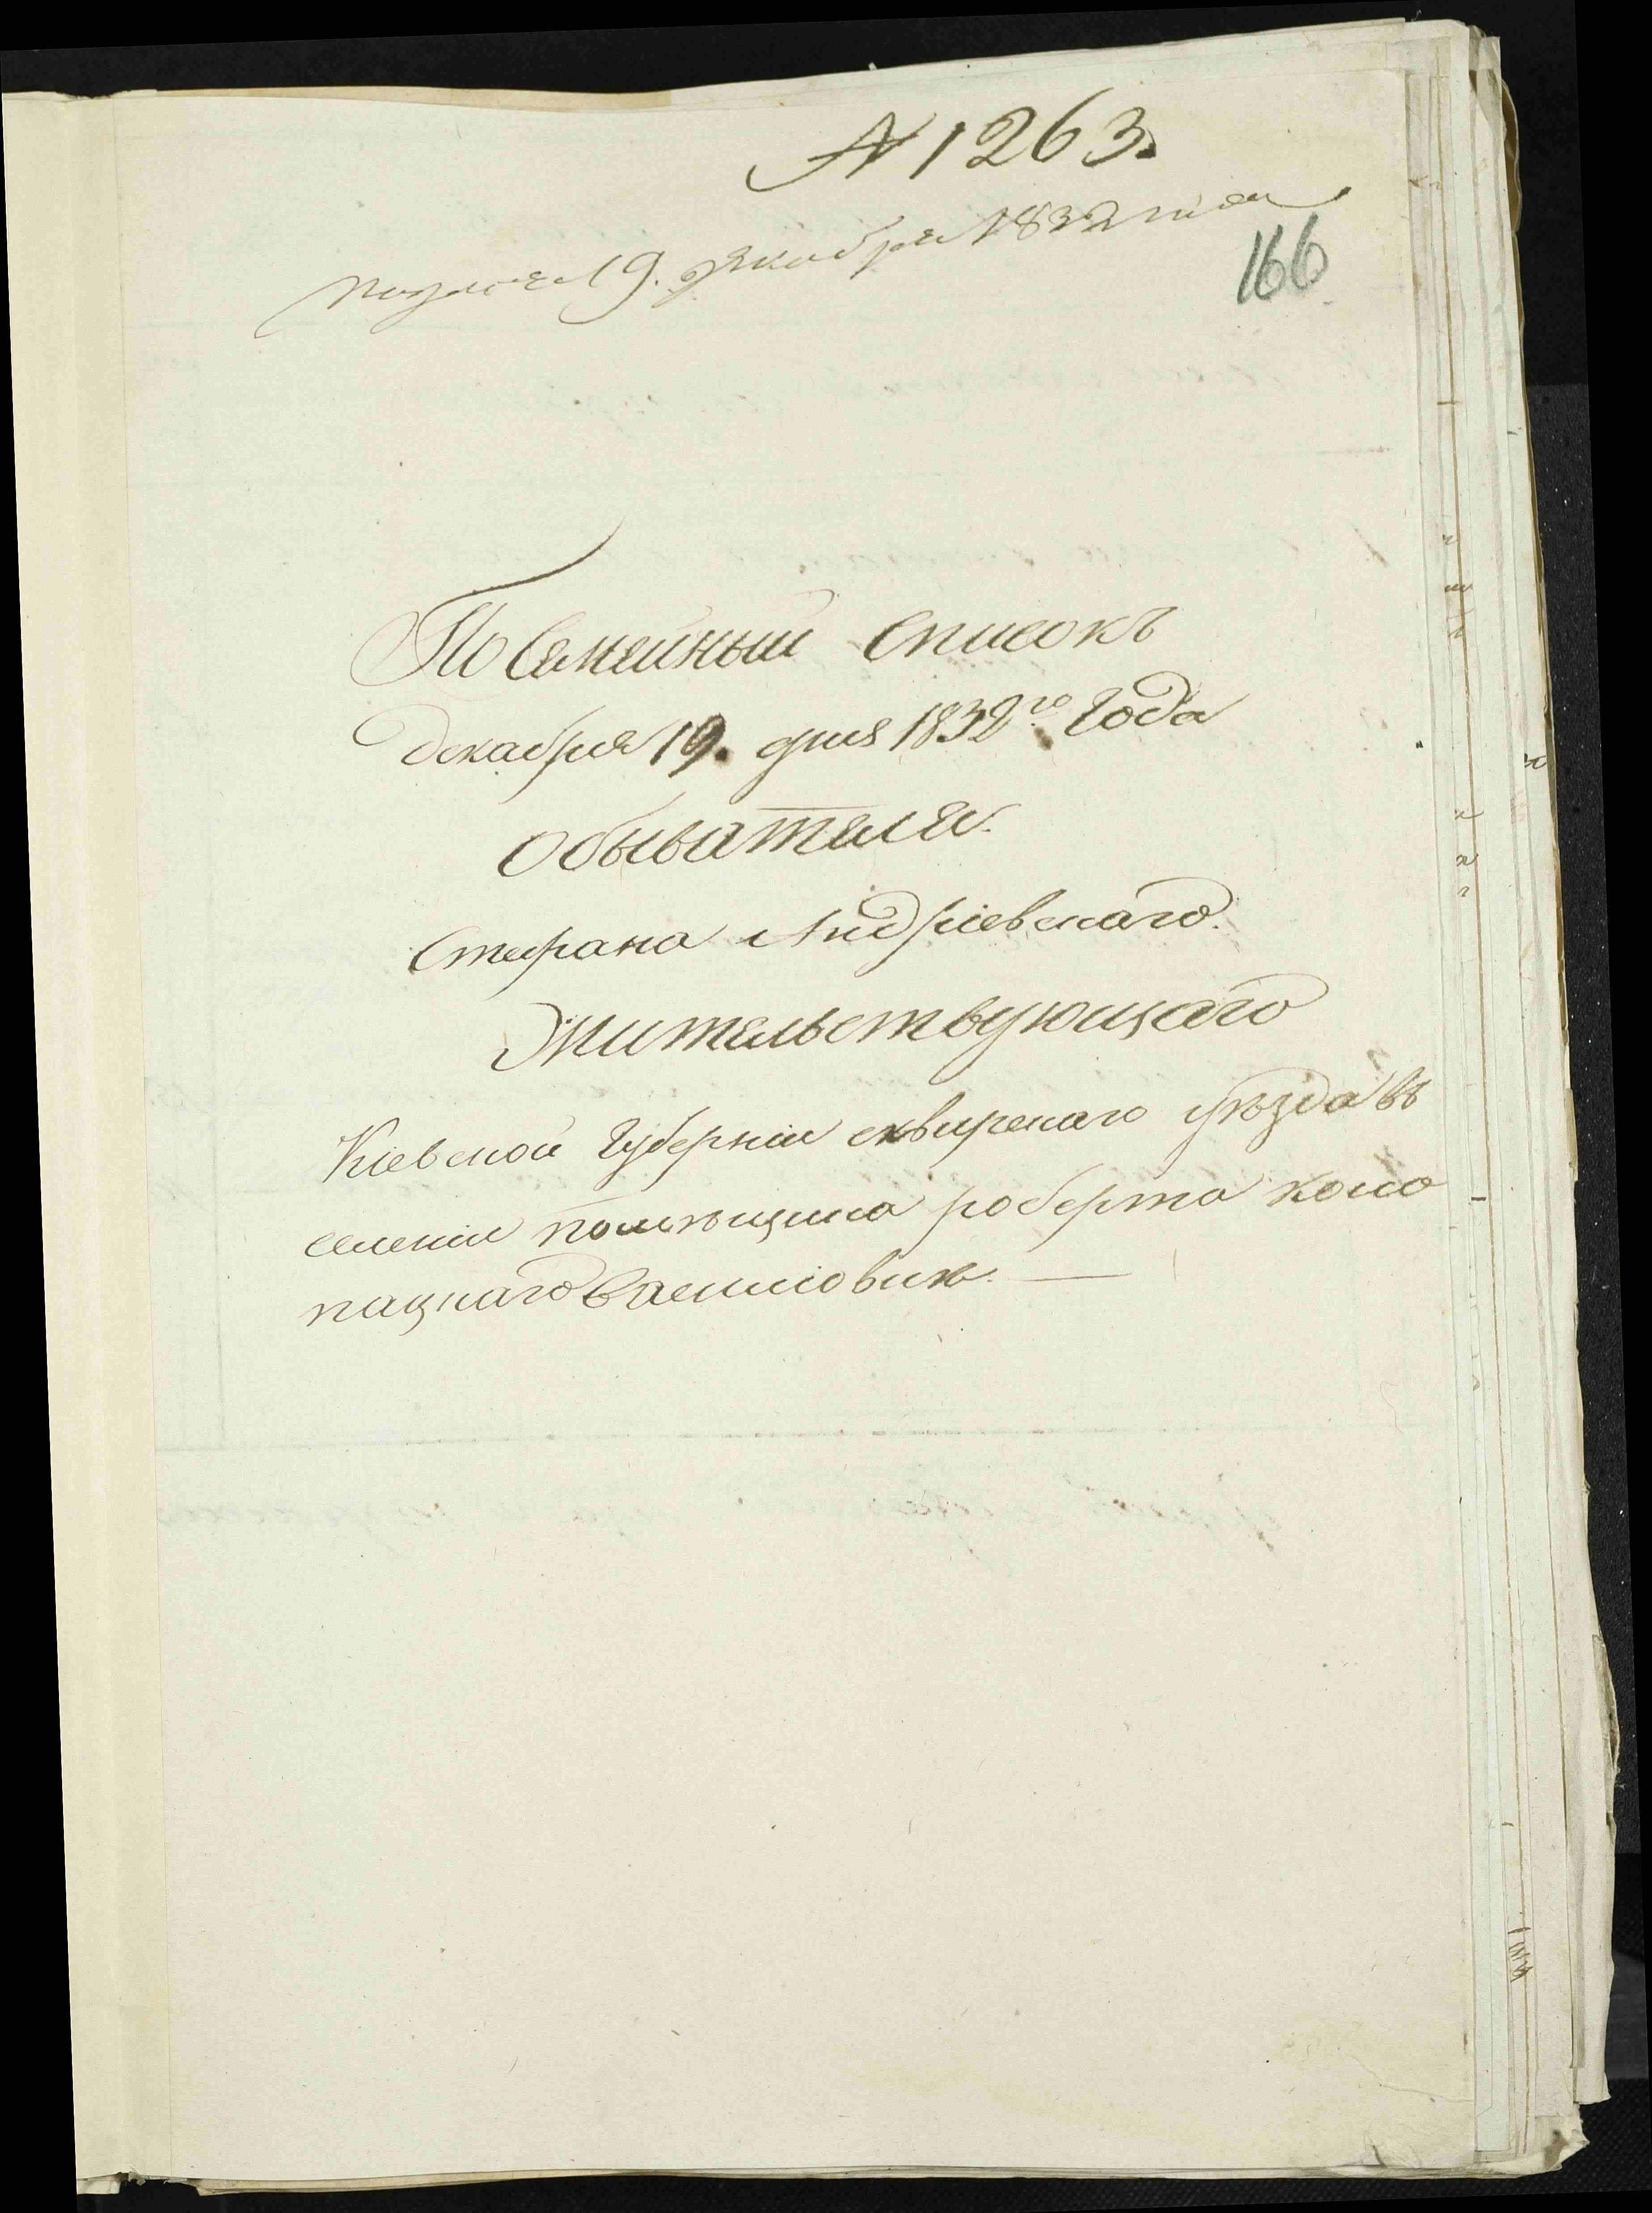 N 1263.
подана 19. декабря 1832 года
166
Посемейный Списокъ
декабря 19. дня 1832го Года
Обывателя.
Стефана Андріевскаго.
Жительствующаго
Кіевской Губерніи сквирскаго уѣзда въ
селеніи помѣщика роберта кома
пацкаго Василіовки. —